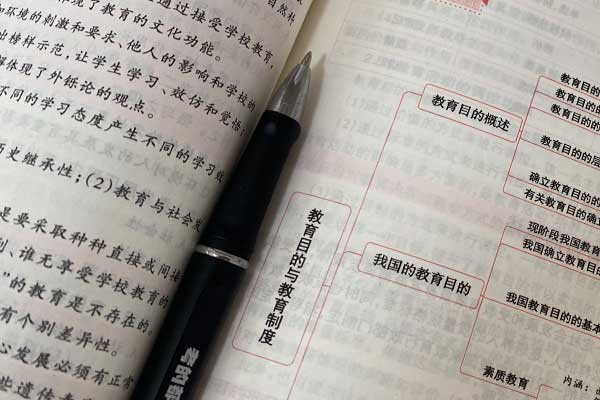 现了教育的文化功能。
通过接受学校教育,
自然科
和环境的刺激和要求、他人的影响和学校的
出榜样示范,让学生学习、效仿和觉悟;
体现了外铄论的观点。
不同的学习态度产生不同的学习效
历史继承性;(2)教育与社会发
是要采取种种直接或间接
、谁无享受学校教育的
”的教育是不存在的。
有个别差异性。
心发展必须有正常
些遗传素
教育目的与教育制度
教育目的概述
教育目的
教育目的的
教育目的的
教育目的的层
确立教育目的的
有关教育目的确立
我国的教育目的
现阶段我国教育
我国确立教育目的
我国教育目的的基本
素质教育
内涵: